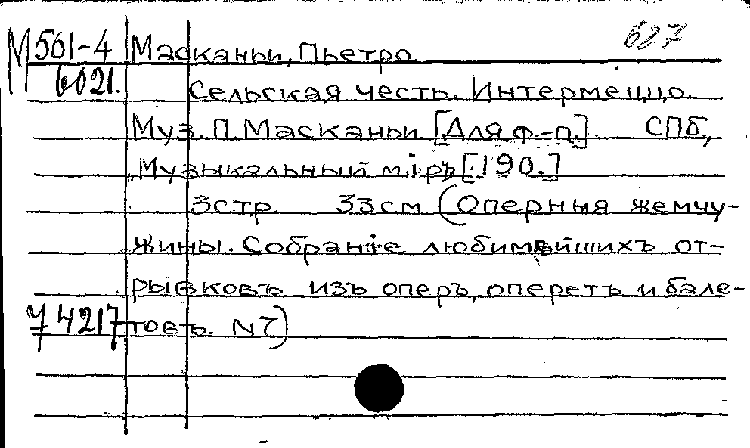 М 561-4 Масканьи, Пьетро. 627
6021. Сельская честь. Интермеццо.
Муз. П. Масканьи [Для ф.-п.] СПб,
"Музыкальный мiръ [190.]
3стр. 33см (Оперныя жемчу-
жины. Собранiе любимѣйшихъ от-
рывковъ изъ оперъ, опереттъ и бале-
74217 товъ. N7)